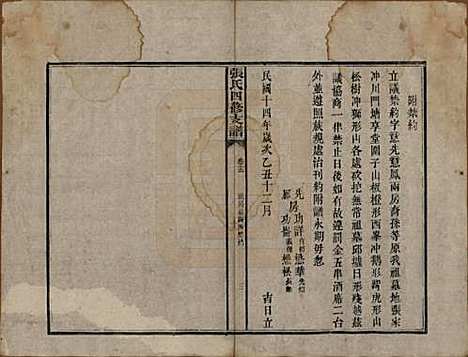 附禁約
立議禁約字意先意鳳兩房裔孫等原我祖墓地張家
冲川門塘享堂園子山椒橙形西峯冲鵝形膺虎形
松樹冲獅形山各處砍挖無常祖墓邱墟目形殘越茲
議協商一律禁止日後如有故違罰金五串酒席二台
外並遵照族規處治刊約附譜永期毋忽
先房功詳 懋華
鳳功樹 懋根
民國十四年歲次乙丑十二月 吉日立
張氏四修支譜
卷五
三